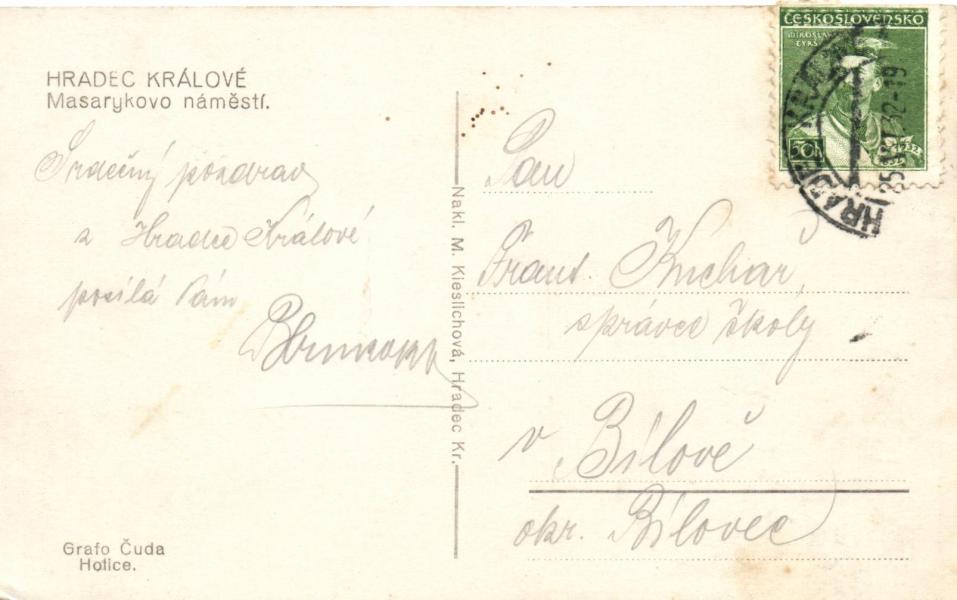 HRADEC KRÁLOVÉ
Masarykovo náměstí.
Srdečný pozdrav
z Hradce Králové
posílá Vám
Nakl. M. Kieslichová, Hradec Kr.
Grafo Čuda
Holice.
ČESKOSLOVENSKO
MIROSLAV
TYRŠ
50h
HRADEC KRÁLOVÉ
Pan
Frant. Kuchař,
správce školy
v Bílově
okr. Bílovec